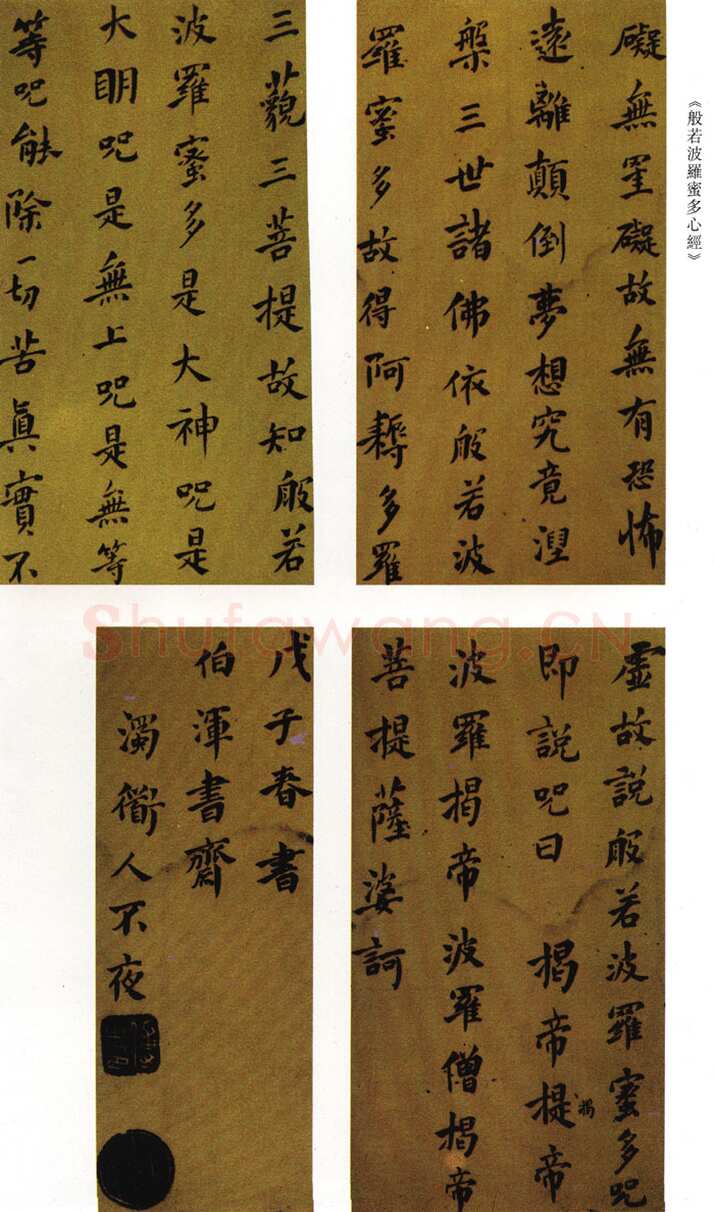 《般若波羅蜜多心經》
礙無罣礙故無有恐怖
遠離顛倒夢想究竟涅
槃三世諸佛依般若波
羅蜜多故得阿耨多羅
三藐三菩提故知般若
波羅蜜多是大神呪是
大眀呪是無上呪是無等
等呪能除一切苦眞實不
虛故說般若波羅蜜多呪
即說呪曰 揭帝提帝
揭
波羅揭帝波羅僧揭帝
菩提薩婆訶
戊子春書
伯渾書齋
濁衜人不夜
Shufawang.CN